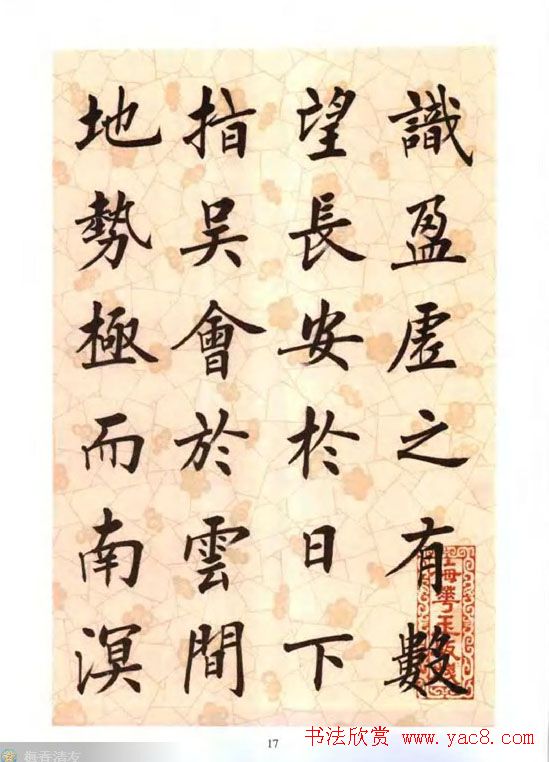 識盈虛之有數
望長安於日下
指吴會於雲間
地勢極而南溟
17
书法欣赏 www.yac8.com
梅香清友